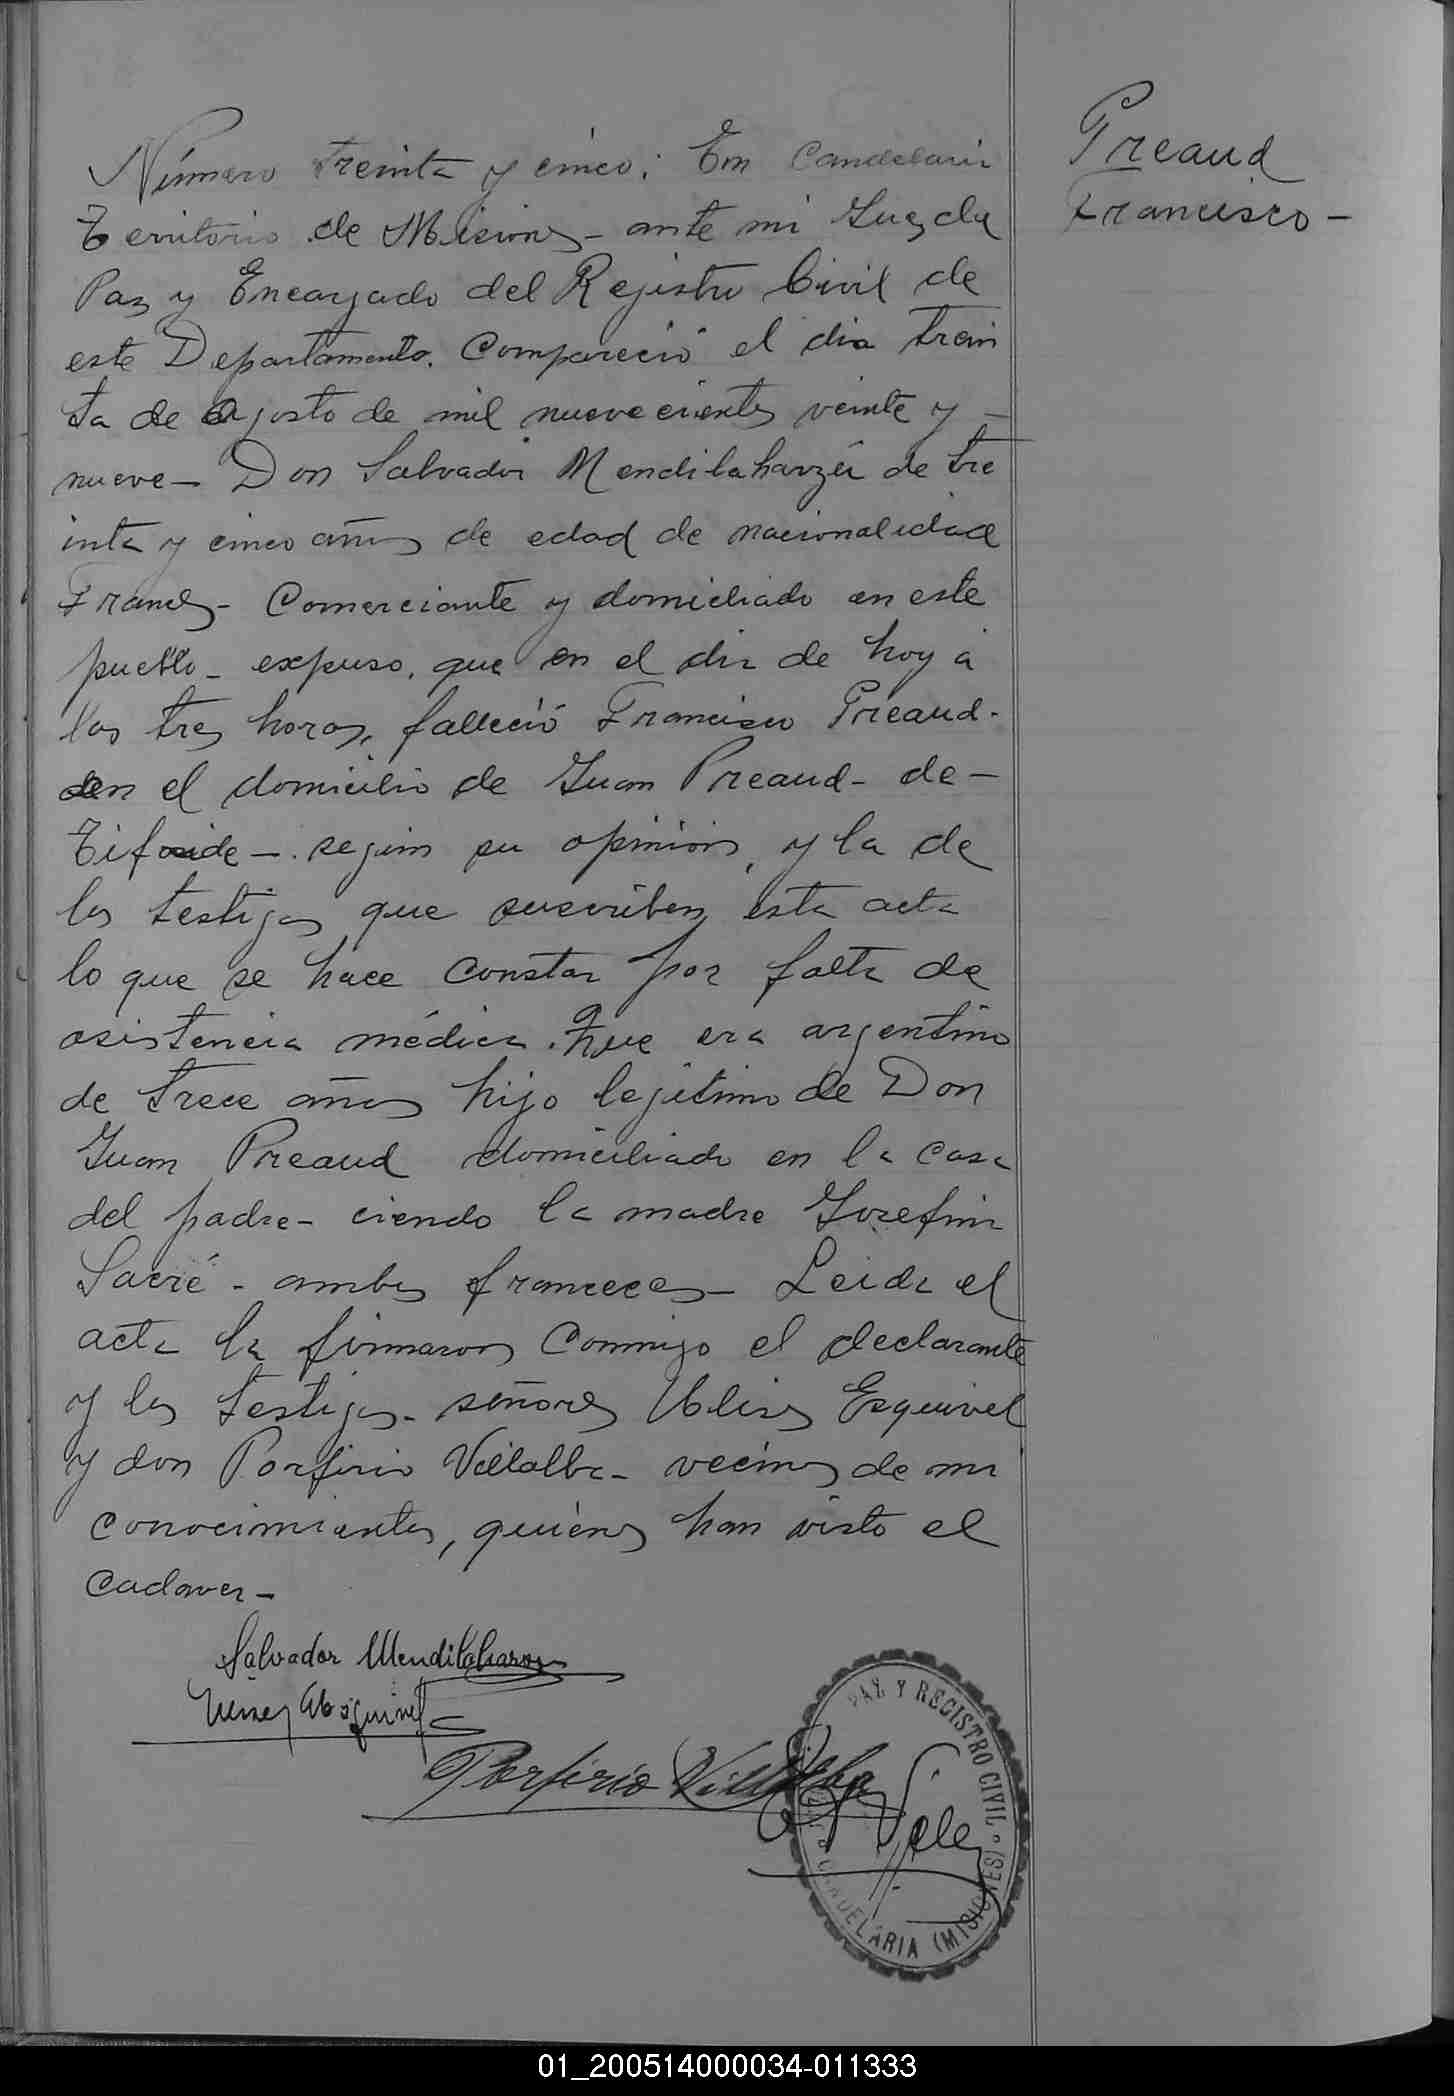 Preaud
Francisco -
Número treinta y cinco: En Candelaria
Territorio de Misiones - ante mi Juez de
Paz y Encargado del Registro Civil de
este Departamento. Compareció el dia trein
ta de agosto de mil nuevecientos veinte y -
nueve - Don Salvador Mendilaharzú de tre
inta y cinco años de edad de nacionalidad
Frances - Comerciante y domiciliado en este
pueblo - expuso, que en el dia de hoy á
las tres horas, falleció Francisco Preaud -
en el domicilio de Juan Preaud - de -
Tifoide - segun su opinion, y la de
los testigos que suscriben esta acta
lo que se hace constar por falta de
asistencia médica. Que era argentino
de trece años hijo legitimo de Don
Juan Preaud domiciliado en la casa
del padre - ciendo la madre Josefina
Sacré - ambos franceces - Leida el
acta la firmaron conmigo el declarante
y los testigos - señores Ulises Esquivel
y don Porfirio Villalba - vecinos de mi
conocimientos, quiénes han visto el
cadaver -
Salvador Mendilaharzu
Ulises Esquivel
Porfirio Villalba
PAZ Y REGISTRO CIVIL
CANDELARIA (MISIONES)
01_200514000034-011333